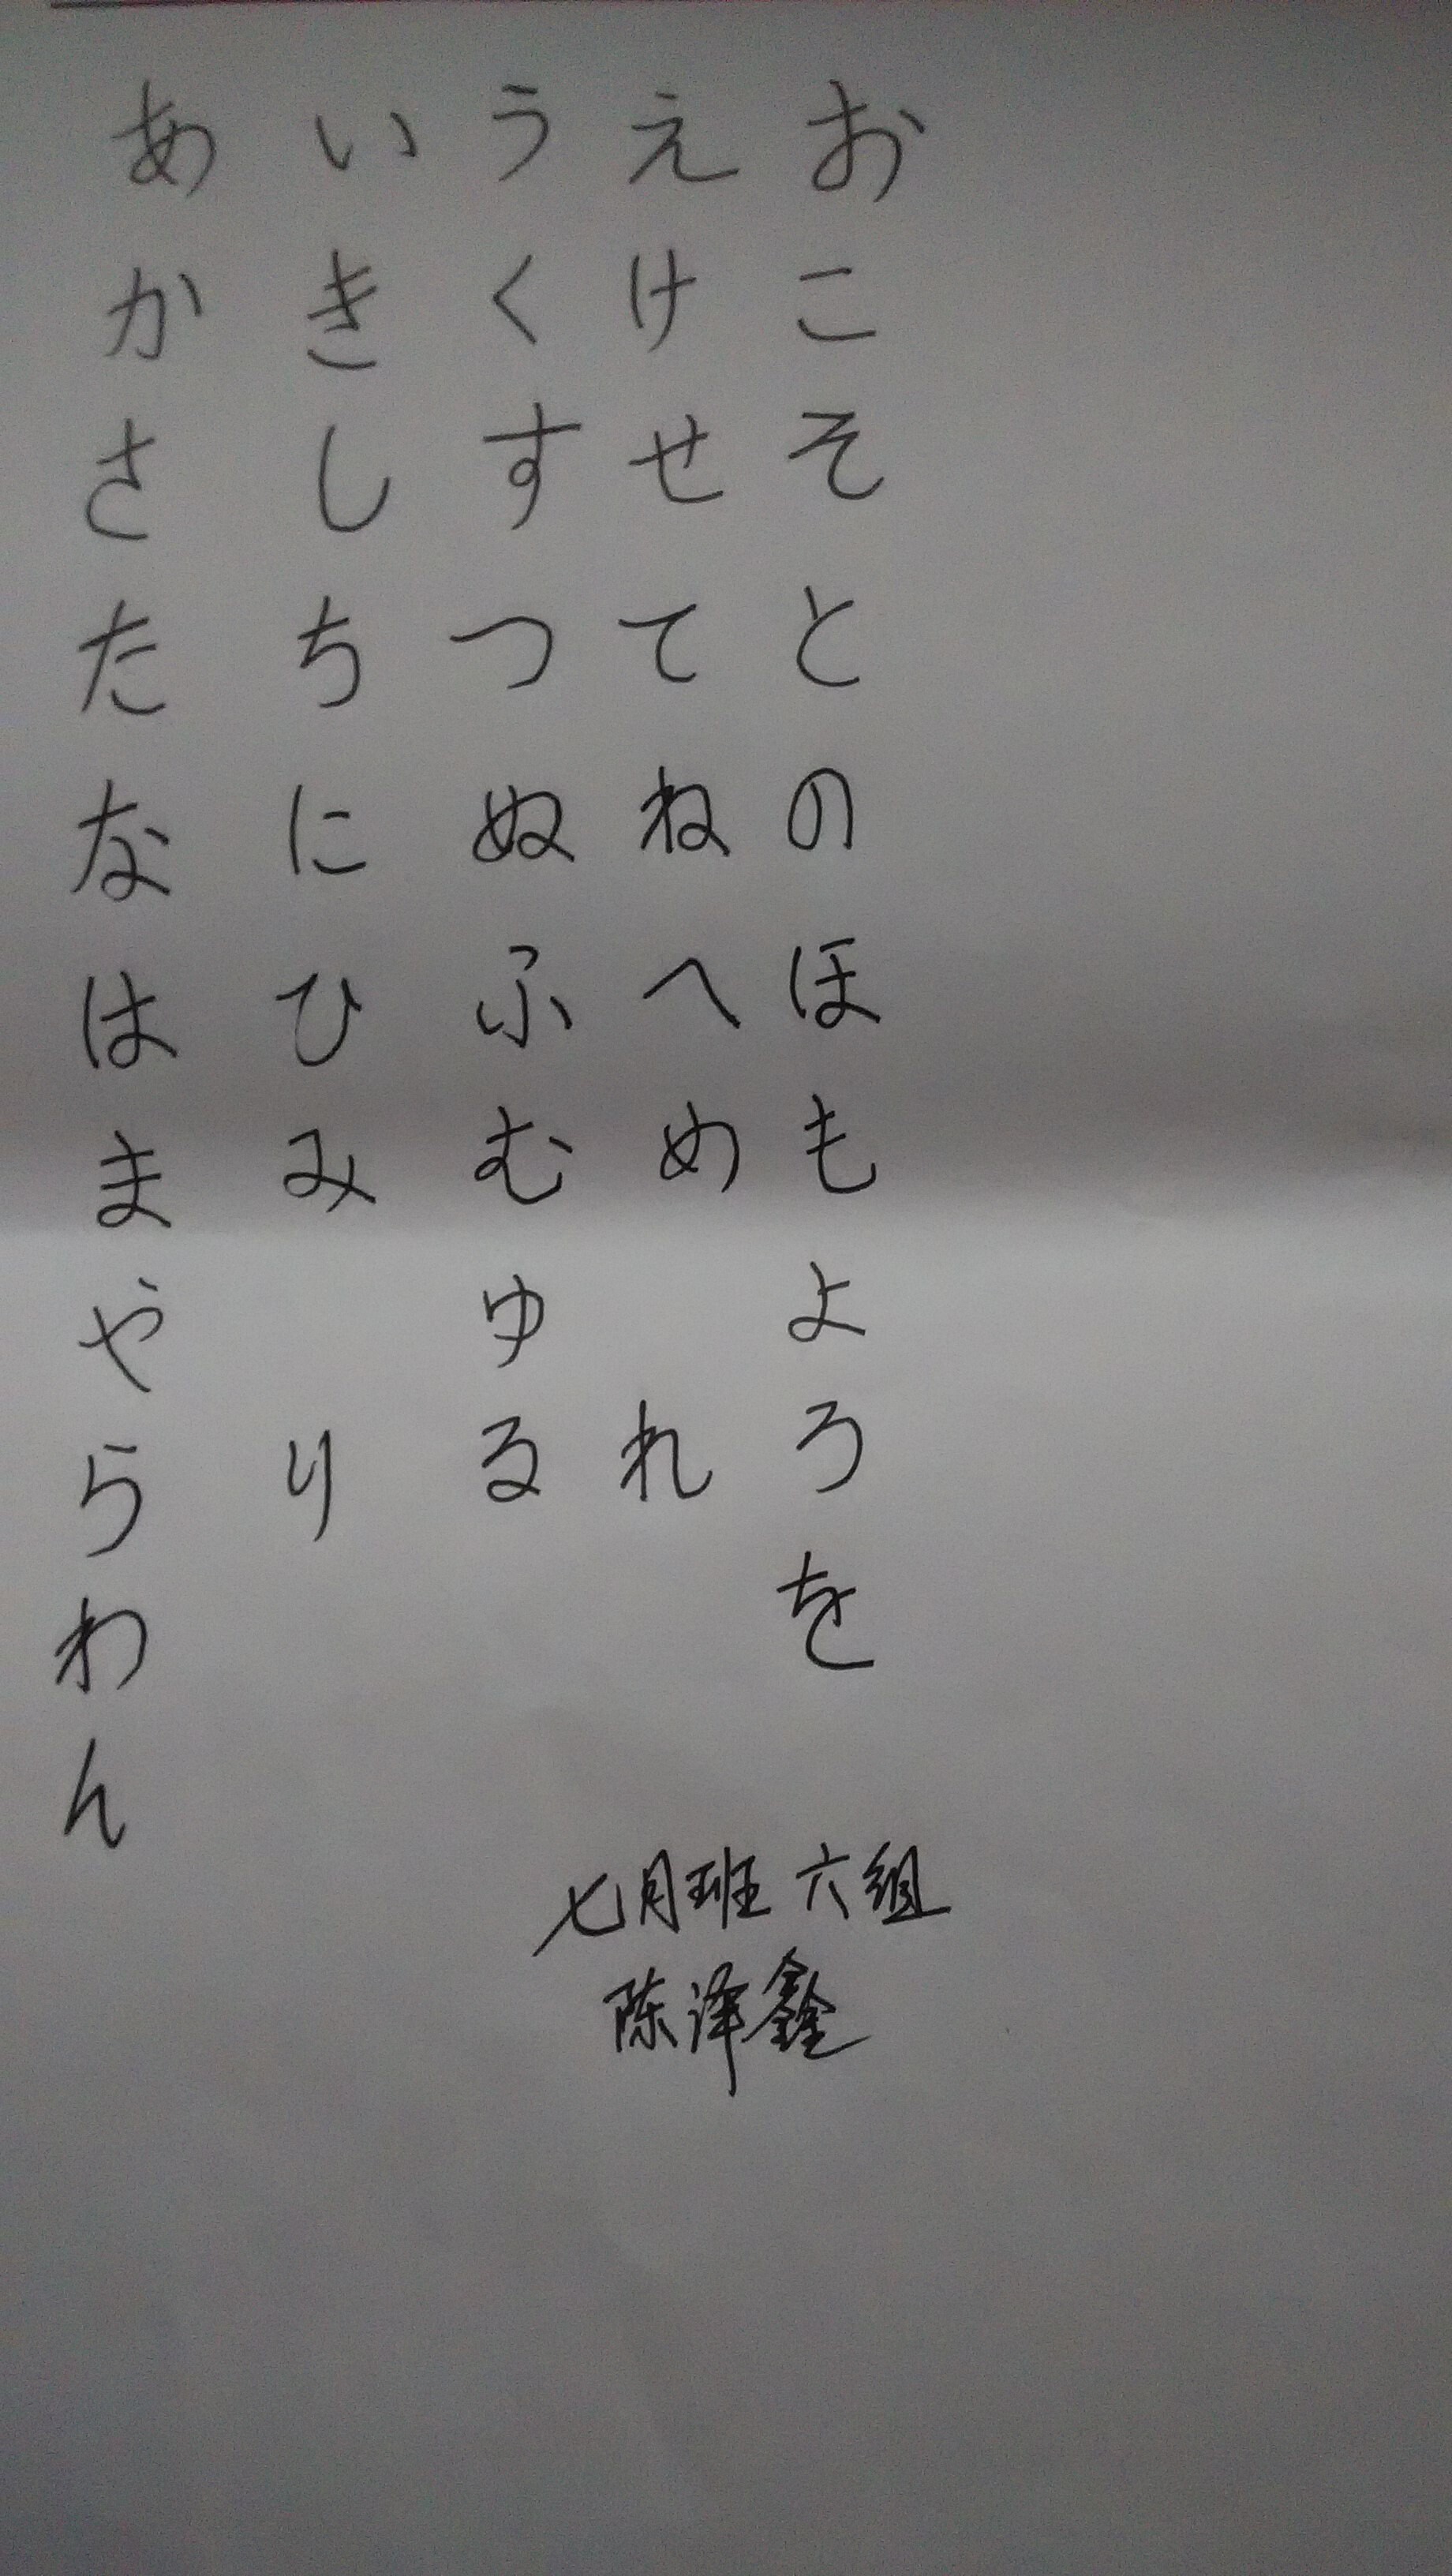 あ い う え お
か き く け こ
さ し す せ そ
た ち つ て と
な に ぬ ね の
は ひ ふ へ ほ
ま み む め も
や ゆ よ
ら り る れ ろ
わ を
ん
七月班 六组
陈泽鑫